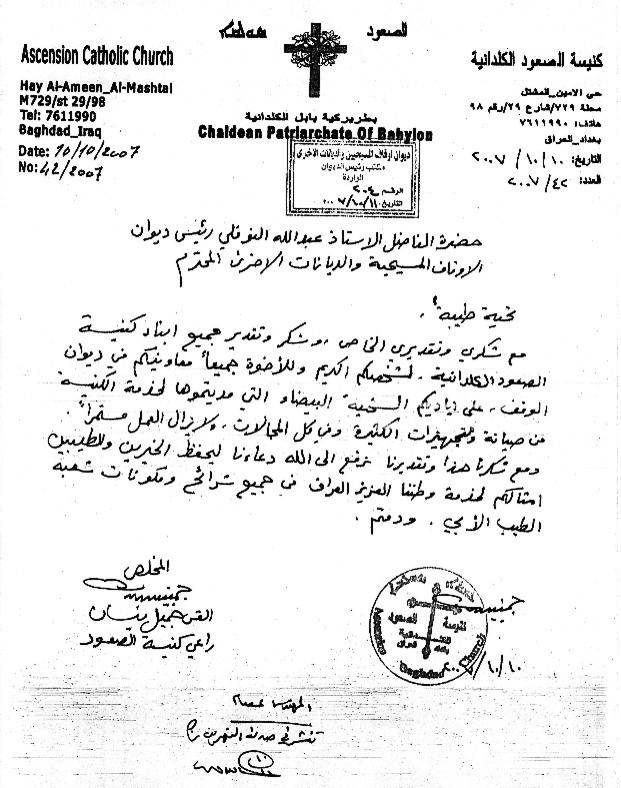 الصعود
Ascension Catholic Church
كنيسة الصعود الكلدانية
Hay Al-Ameen_Al-Mashtal
M729/st 29/98
Tel: 7611990
Baghdad_Iraq
Date: 10/10/2007
No: 42/2007
حي الامين_المشتل
محلة ٧٢٩/شارع ٢٩/رقم ٩٨
هاتف: ٧٦١١٩٩٠
بغداد_العراق
التاريخ: ١٠/١٠/٢٠٠٧
العدد: ٤٢/٢٠٠٧
بطريركية بابل للكلدانية
Chaldean Patriarchate Of Babylon
ديوان اوقاف المسيحيين والديانات الاخرى
مكتب رئيس الديوان
الواردة
الرقم ٢٠٤
التاريخ ١١/١٠/٢٠٠٧
حضرة الفاضل الاستاذ عبدالله النوفلي رئيس ديوان
الاوقاف المسيحية والديانات الاخرى المحترم
تحية طيبة،
مع شكري وتقديري الخاص، وشكر وتقدير جميع ابناء كنيسة
الصعود الكلدانية. لشخصكم الكريم وللأخوة جميعاً معاونيكم في ديوان
الوقف، على اياديكم السخية البيضاء التي مديتموها لخدمة الكنيسة
من صيانة وتجهيزات الكثيرة وفي كل المجالات، ولايزال العمل مستمراً.
ومع شكرنا هذا وتقديرنا نرفع الى الله دعاءنا ليحفظ الخيرين والطيبين
امثالكم لخدمة وطننا العزيز العراق في جميع شرائح ومكونات شعبه
الطيب الأبي. ودمتم.
المخلص
القس جميل نيسان
راعي كنيسة الصعود
كنيسة الصعود
الكلدانية
Ascension Church
Baghdad
١٠/١٠
المهندس عصام